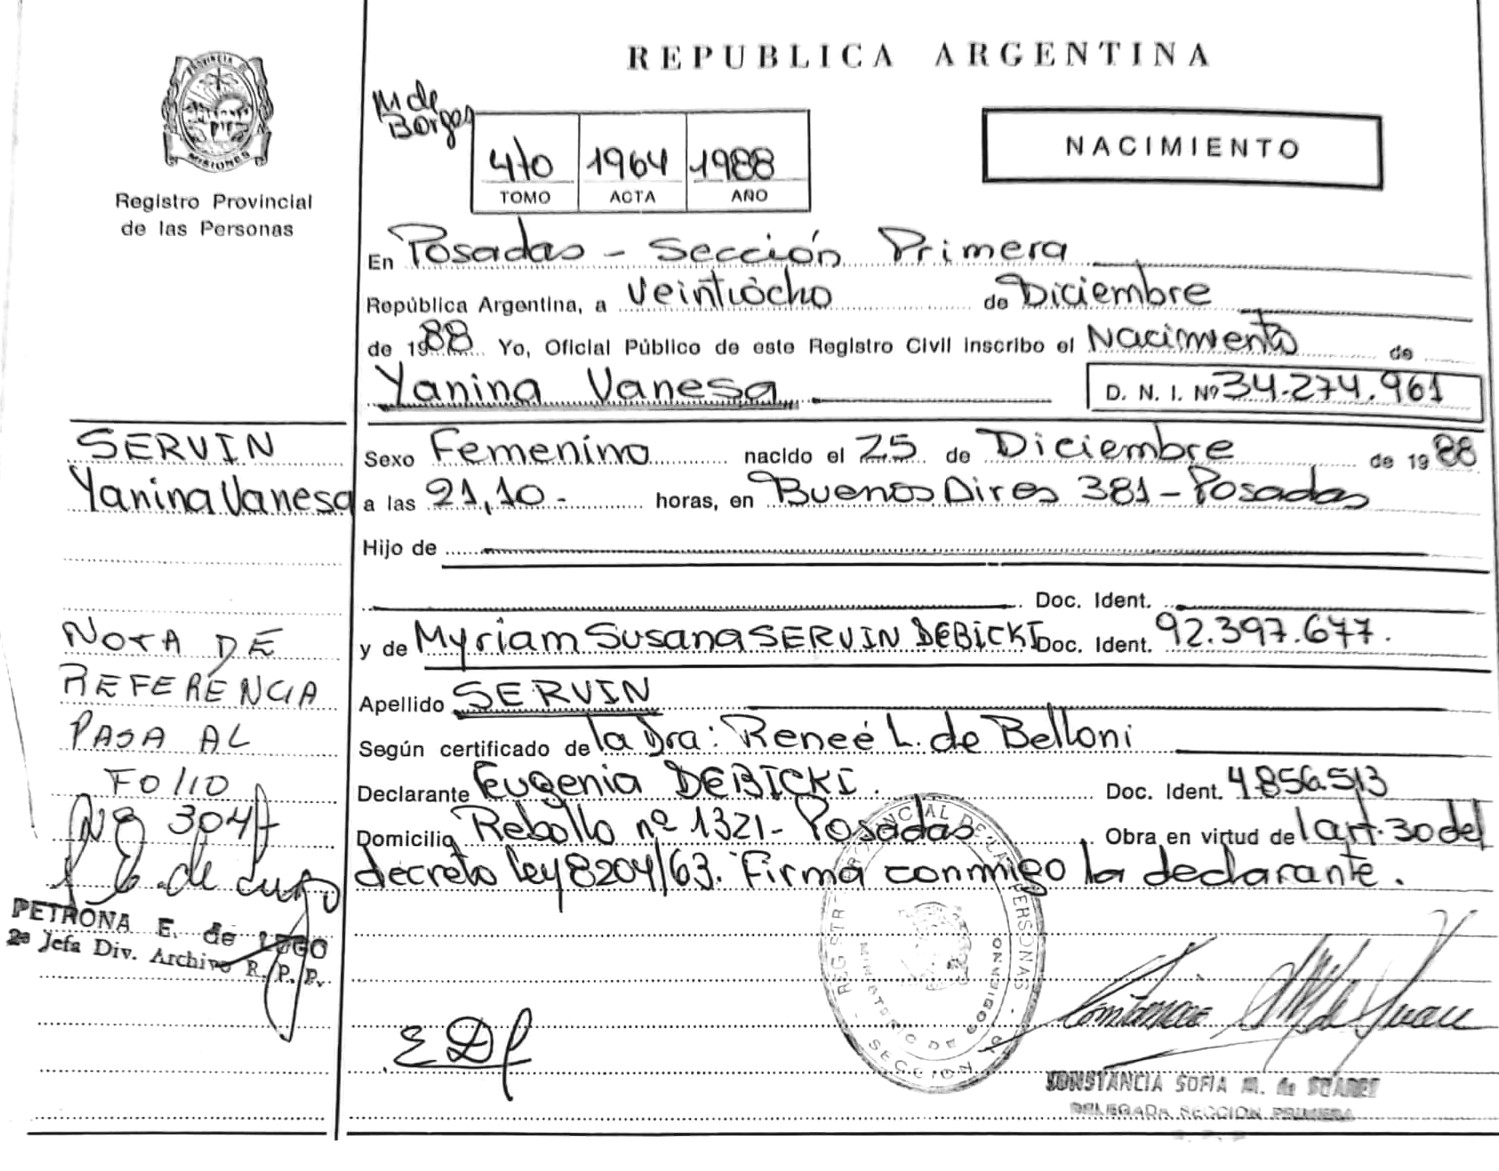 REPUBLICA ARGENTINA
PROVINCIA DE
MISIONES
Registro Provincial
de las Personas
M de
Borges
4to 1964 1988
TOMO ACTA AÑO
NACIMIENTO
En Posadas - Sección Primera
República Argentina, a Veintiocho de Diciembre
de 1988 Yo, Oficial Público de este Registro Civil inscribo el Nacimiento de
Yanina Vanesa D. N. I. Nº 34.274.961
SERVIN
Yanina Vanesa
Sexo Femenino nacido el 25 de Diciembre de 1988
a las 21,10.- horas, en Buenos Aires 381 - Posadas
Hijo de
Doc. Ident.
y de Myriam Susana SERVIN DEBICKI Doc. Ident. 92.397.677.
Apellido SERVIN
Según certificado de la Dra: Reneé L. de Belloni
Declarante Eugenia DEBICKI. Doc. Ident. 4.856.513
Domicilio Rebollo nº 1321 - Posadas Obra en virtud del art. 30 del
decreto ley 8204/63. Firma conmigo la declarante.
NOTA DE
REFERENCIA
PASA AL
FOLIO
Nº 304
E. de Lugo
PETRONA E. de LUGO
2ª Jefa Div. Archivo R. P. P.
REGISTRO PROVINCIAL DE LAS PERSONAS
MINISTERIO DE GOBIERNO
SECCION
EDf
CONSTANCIA SOFIA M. de SUAREZ
DELEGADA SECCION PRIMERA